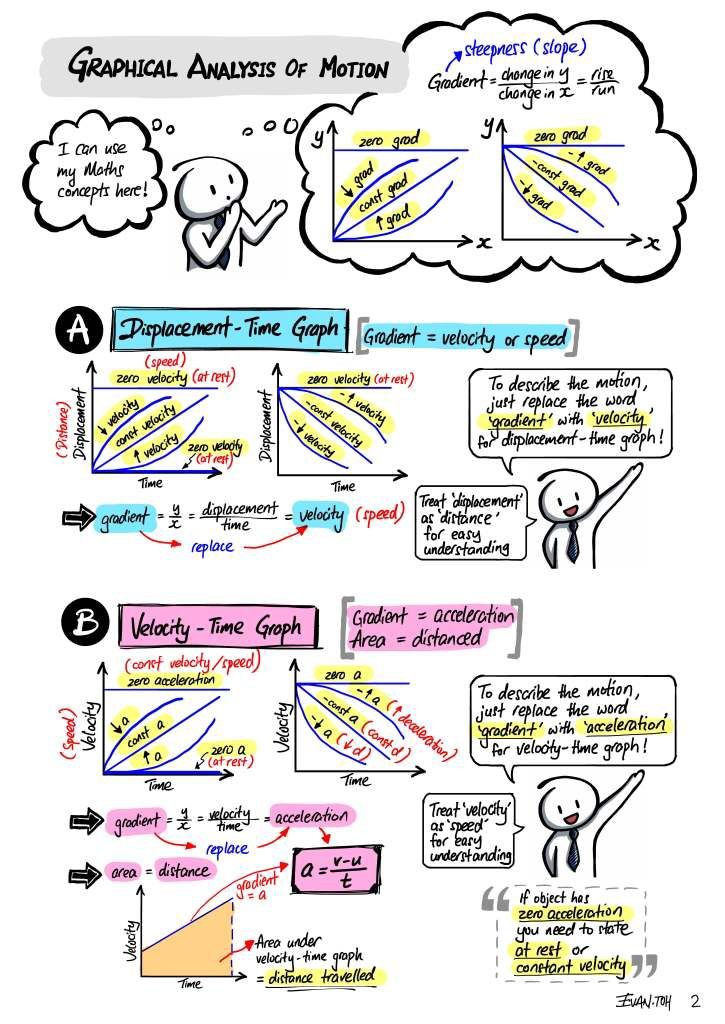 GRAPHICAL ANALYSIS OF MOTION
steepness (slope)
Gradient = change in y / change in x = rise / run
I can use
my Maths
concepts here!
y
zero grad
↓ grad
const grad
↑ grad
x
y
zero grad
-↑ grad
-const grad
-↓ grad
x
A
Displacement-Time Graph
[Gradient = velocity or speed]
(speed)
zero velocity (at rest)
(Distance)
Displacement
↓ velocity
const velocity
↑ velocity
zero velocity
(at rest)
Time
Displacement
zero velocity (at rest)
-↑ velocity
-const velocity
-↓ velocity
Time
gradient = y/x = displacement / time = velocity (speed)
replace
To describe the motion,
just replace the word
'gradient' with 'velocity'
for displacement-time graph!
Treat 'displacement'
as 'distance'
for easy
understanding
B
Velocity-Time Graph
Gradient = acceleration
Area = distanced
(const velocity/speed)
zero acceleration
(Speed)
Velocity
↓ a
const a
↑ a
zero a
(at rest)
Time
Velocity
zero a
-↑ a (↑ deceleration)
-const a (const d)
-↓ a (↓ d)
Time
To describe the motion,
just replace the word
'gradient' with 'acceleration'
for velocity-time graph!
Treat 'velocity'
as 'speed'
for easy
understanding
gradient = y/x = velocity / time = acceleration
replace
area = distance
a = v-u / t
gradient
= a
Velocity
Time
Area under
velocity-time graph
= distance travelled
"If object has
zero acceleration
you need to state
at rest or
constant velocity"
EVAN.TOH 2